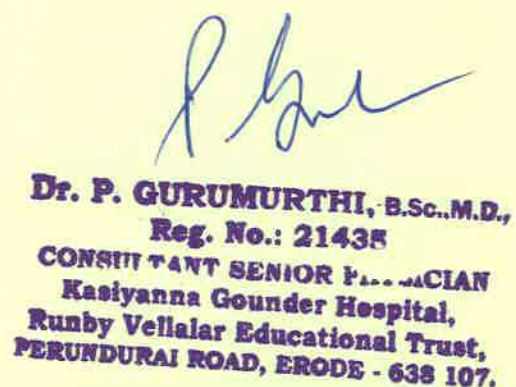 Dr. P. GURUMURTHI, B.Sc.,M.D.,
Reg. No.: 21435
CONSULTANT SENIOR PHYSICIAN
Kasiyanna Gounder Hospital,
Runby Vellalar Educational Trust,
PERUNDURAI ROAD, ERODE - 638 107.